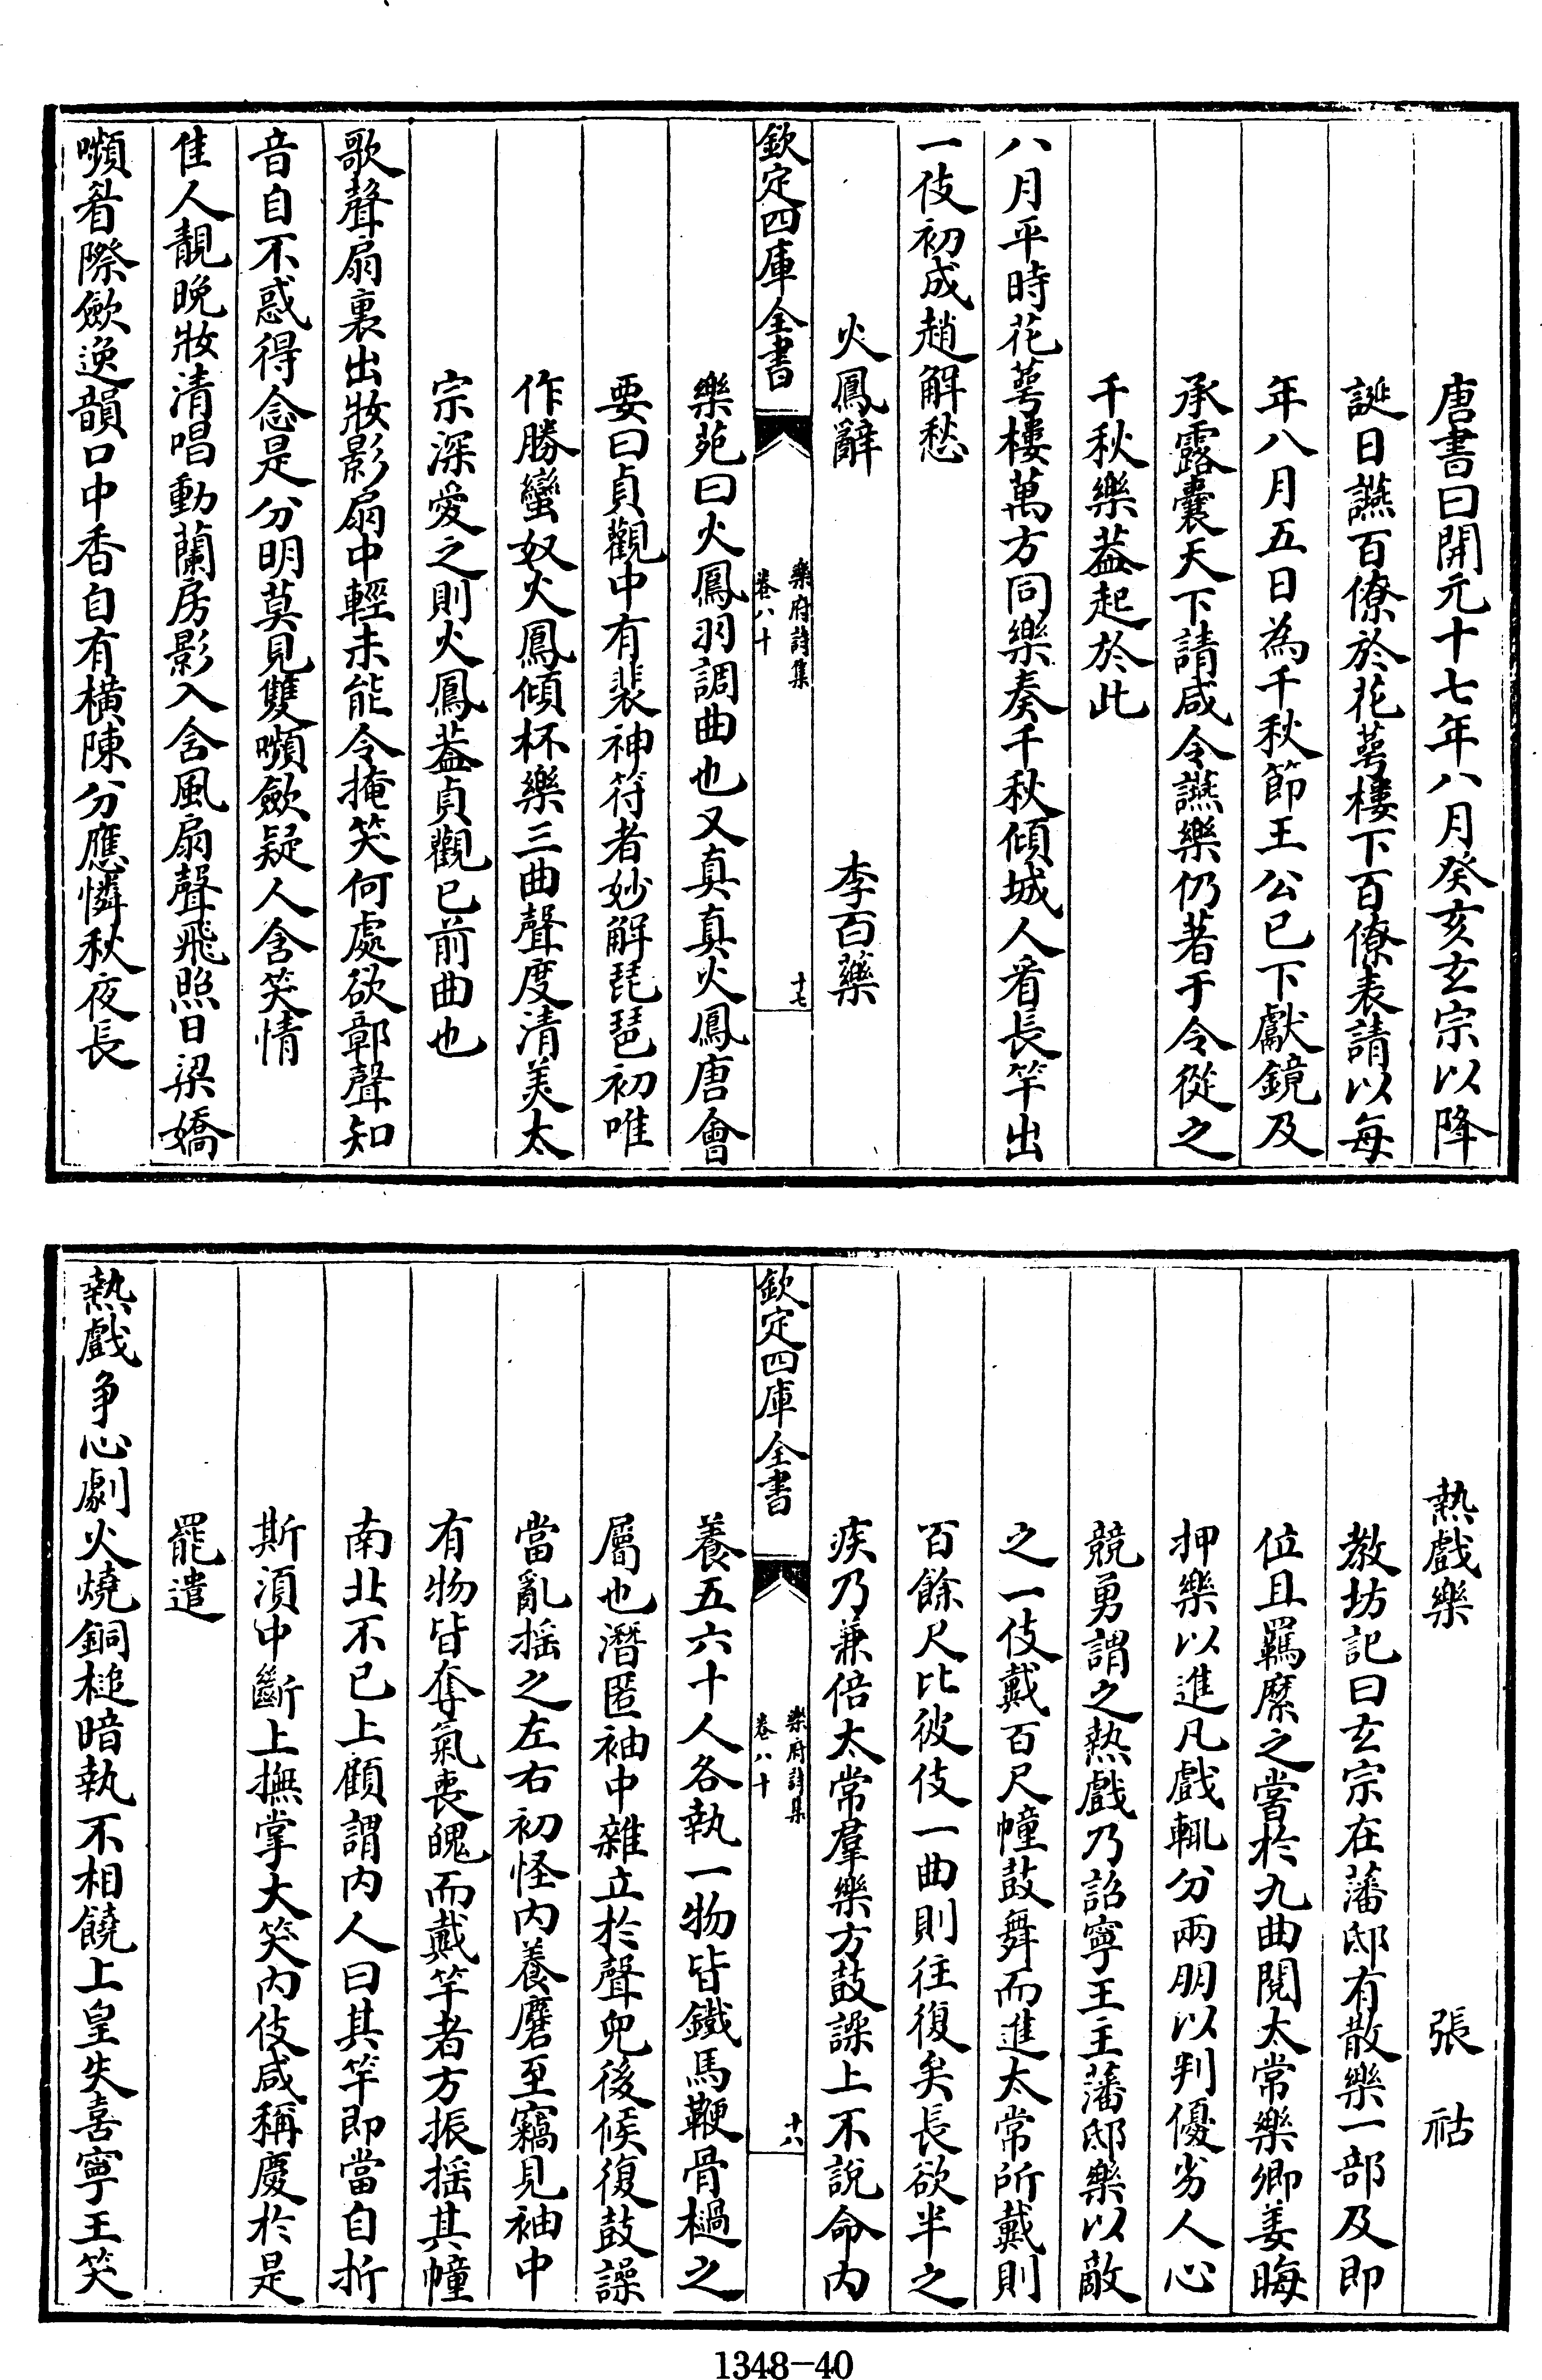 唐書曰開元十七年八月癸亥玄宗以降
誕日讌百僚於花萼樓下百僚表請以每
年八月五日為千秋節王公已下獻鏡及
承露囊天下請咸令讌樂仍著于令從之
千秋樂葢起於此
八月平時花萼樓萬方同樂奏千秋傾城人看長竿出
一伎初成趙解愁
火鳳辭 李百藥
欽定四庫全書 樂府詩集 卷八十 十七
樂苑曰火鳳羽調曲也又真真火鳳唐會
要曰貞觀中有裴神符者妙解琵琶初唯
作勝蠻奴火鳳傾杯樂三曲聲度清美太
宗深愛之則火鳳葢貞觀已前曲也
歌聲扇裏出妝影扇中輕未能令掩笑何處欲鄣聲知
音自不惑得念是分明莫見雙嚬歛疑人含笑情
佳人靚晚妝清唱動蘭房影入含風扇聲飛照日梁嬌
嚬眉際歛逸韻口中香自有橫陳分應憐秋夜長
熱戲樂 張祜
教坊記曰玄宗在藩邸有散樂一部及即
位且羈縻之嘗於九曲閱太常樂卿姜晦
押樂以進凡戲輒分兩朋以判優劣人心
競勇謂之熱戲乃詔寧王主藩邸樂以敵
之一伎戴百尺幢鼓舞而進太常所戴則
百餘尺比彼伎一曲則往復矣長欲半之
疾乃兼倍太常羣樂方鼓譟上不說命內
欽定四庫全書 樂府詩集 卷八十 十八
養五六十人各執一物皆鐵馬鞭骨檛之
屬也潛匿袖中雜立於聲兒後候復鼓譟
當亂揺之左右初怪內養麕至竊見袖中
有物皆奪氣喪魄而戴竿者方振揺其幢
南北不已上顧謂內人曰其竿即當自折
斯湏中斷上撫掌大笑內伎咸稱慶於是
罷遣
熱戲爭心劇火燒銅槌暗執不相饒上皇失喜寧王笑
1348-40